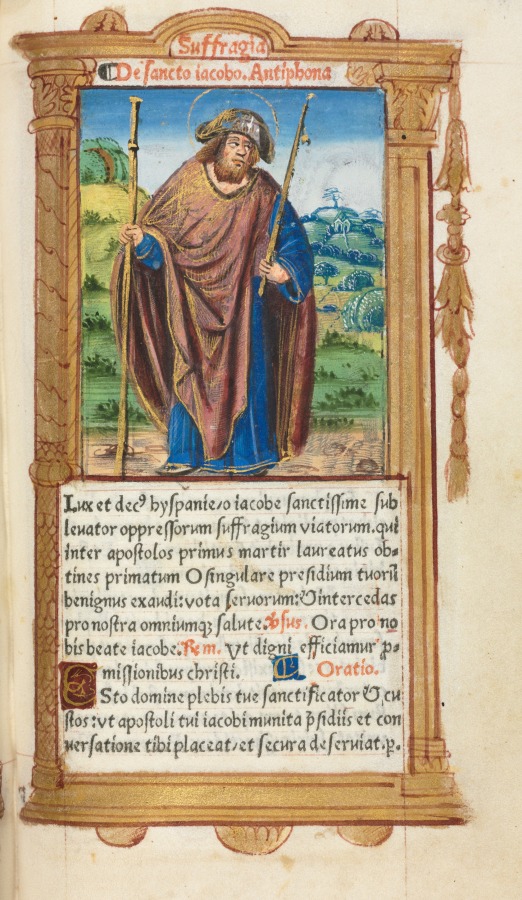 Suffragia
De sancto iacobo. Antiphona
Lux et decꝰ hyspanie/o iacobe sanctissime sub
leuator oppressorum suffragium viatorum.qui
inter apostolos primus martir laureatus ob-
tines primatum O singulare presidium tuorū
benignus exaudi:vota seruorum:⁊ intercedas
pro nostra omniumqꝫ salute. ꝟsus. Ora pro no
bis beate iacobe. Rem. Vt digni efficiamur p-
missionibus christi. Oratio.
ESto domine plebis tue sanctificator ⁊ cu
stos:vt apostoli tui iacobi munita p̄sidiis et con
uersatione tibi placeat/et secura deseruiat.p.